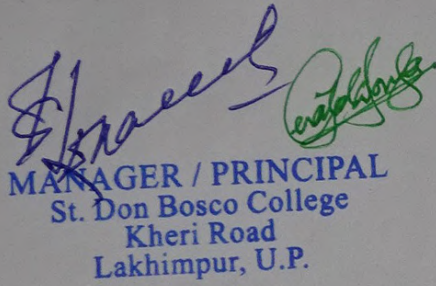 MANAGER / PRINCIPAL
St. Don Bosco College
Kheri Road
Lakhimpur, U.P.